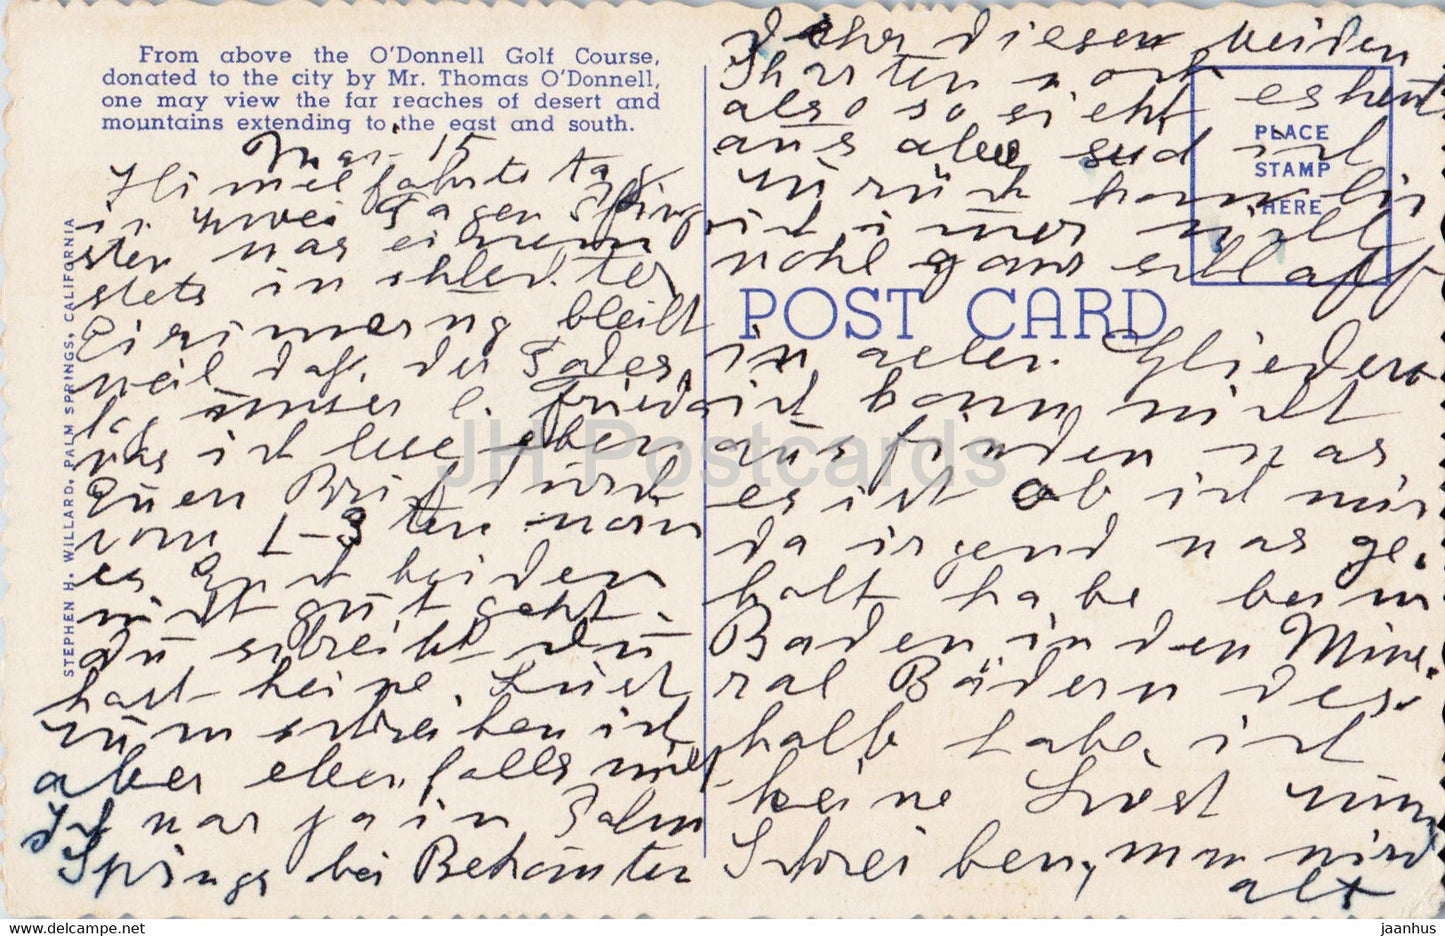 From above the O'Donnell Golf Course,
donated to the city by Mr. Thomas O'Donnell,
one may view the far reaches of desert and
mountains extending to the east and south.
STEPHEN H. WILLARD, PALM SPRINGS, CALIFORNIA
POST CARD
PLACE
STAMP
HERE
15
Himmelfahrts tag
in zwei Tagen Pfing
sten was einem
stets in schlechter
Erinnerung bleibt
weil das, der Todes
tag unser l. Friedr
was ich lese eben
Euren Brief durch
vom 1-3 ten worin
es Euch beiden
nicht gut geht.
du schreibst du
hast keine Lust
zum schreiben ich
aber ebenfalls nicht
Ich war ja in Palm
Springs bei Bekannten
diesen beiden
Kharten dort es heut
also so sieht
aus aber seid ich
zurück kam bin
ich immer
wohl ganz schlapp
in allen Gliedern
ich kann nicht
ausfinden was
es ist ob ich mir
da irgend was ge
holt habe beim
Baden in den Mine
ral Bädern des
halb habe ich
keine Lust zum
Schreiben, man wird
alt
JH Postcards
www.delcampe.net
jaanhus